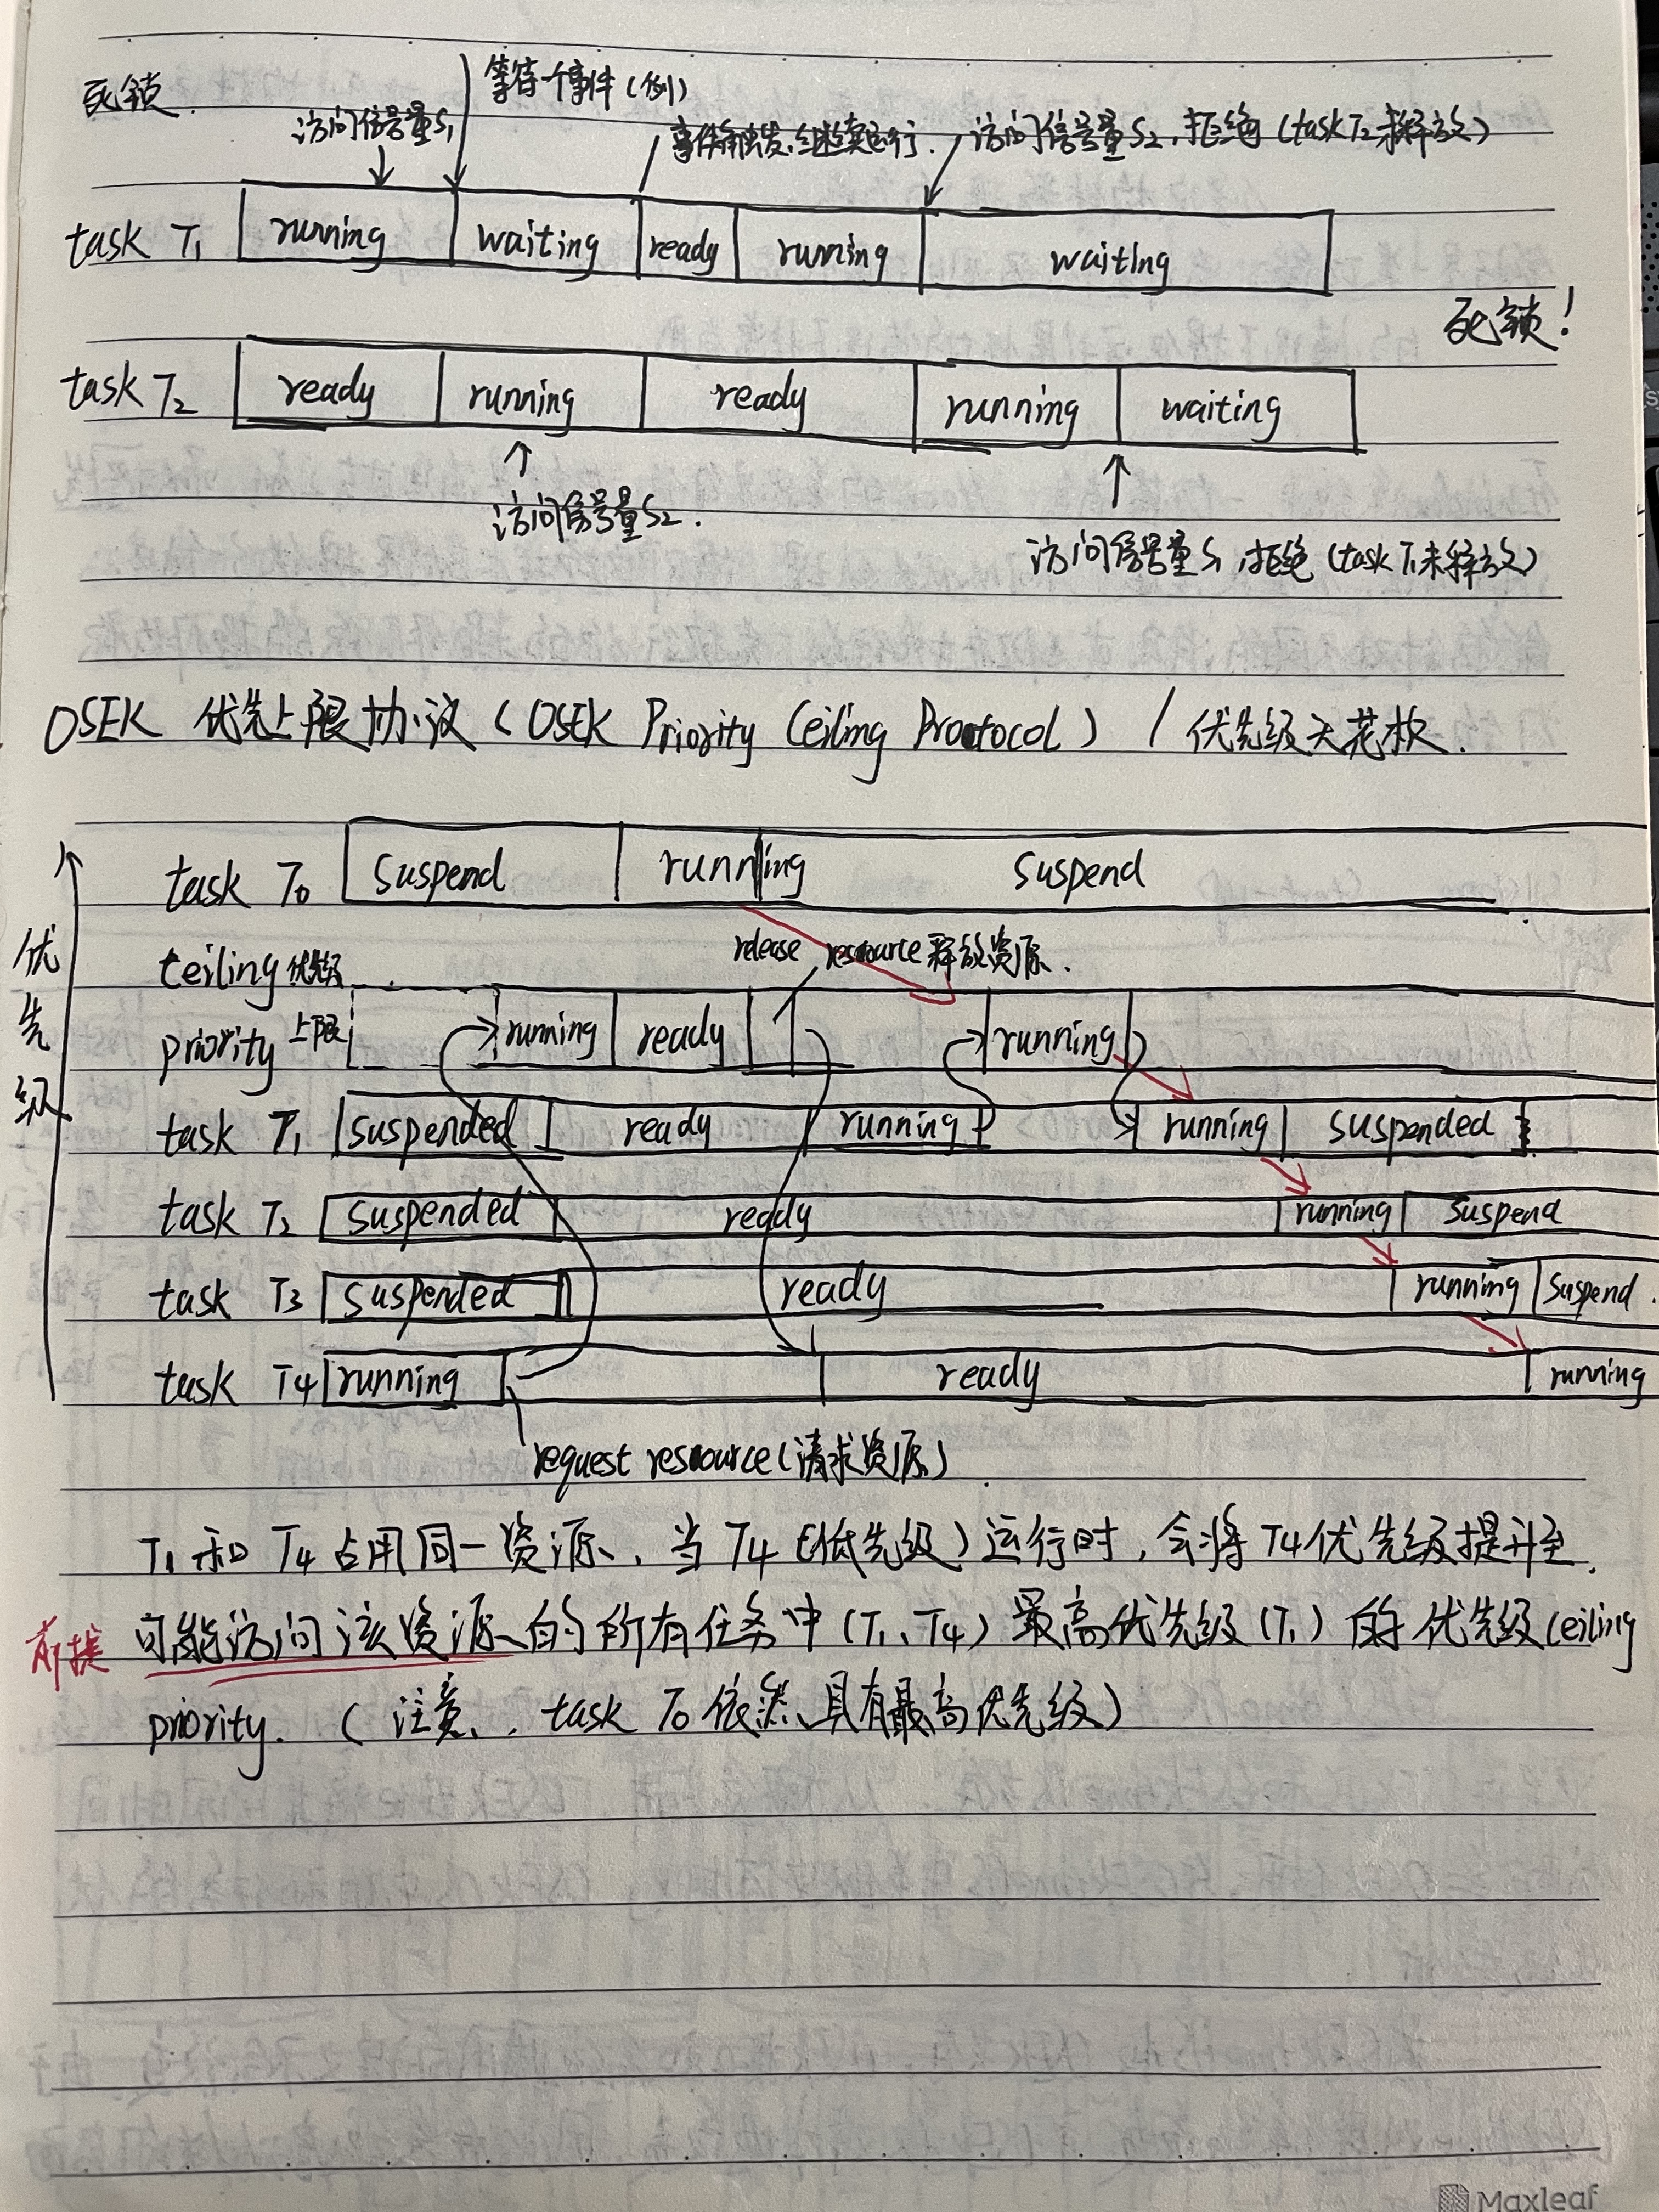 死锁
等待一个事件(例)
访问信号量S1
事件触发,继续运行.
访问信号量S2,拒绝(task T2未释放)
task T1 running waiting ready running waiting
死锁!
task T2 ready running ready running waiting
访问信号量S2.
访问信号量S1,拒绝(task T1未释放)
OSEK 优先上限协议(OSEK Priority Ceiling Prootocol) / 优先级天花板.
task T0 suspend running suspend
优先级
ceiling 优先级
release resource 释放资源.
priority 上限 running ready running
task T1 suspended ready running running suspended
task T2 suspended ready running suspend
task T3 suspended ready running suspend.
task T4 running ready running
request resource(请求资源)
T1 和 T4 占用同一资源, 当 T4 (低优先级)运行时,会将 T4 优先级提升至
前提 可能访问该资源的所有任务中(T1、T4)最高优先级(T1)的优先级Ceiling
priority. (注意, task T0 依然具有最高优先级)
Maxleaf